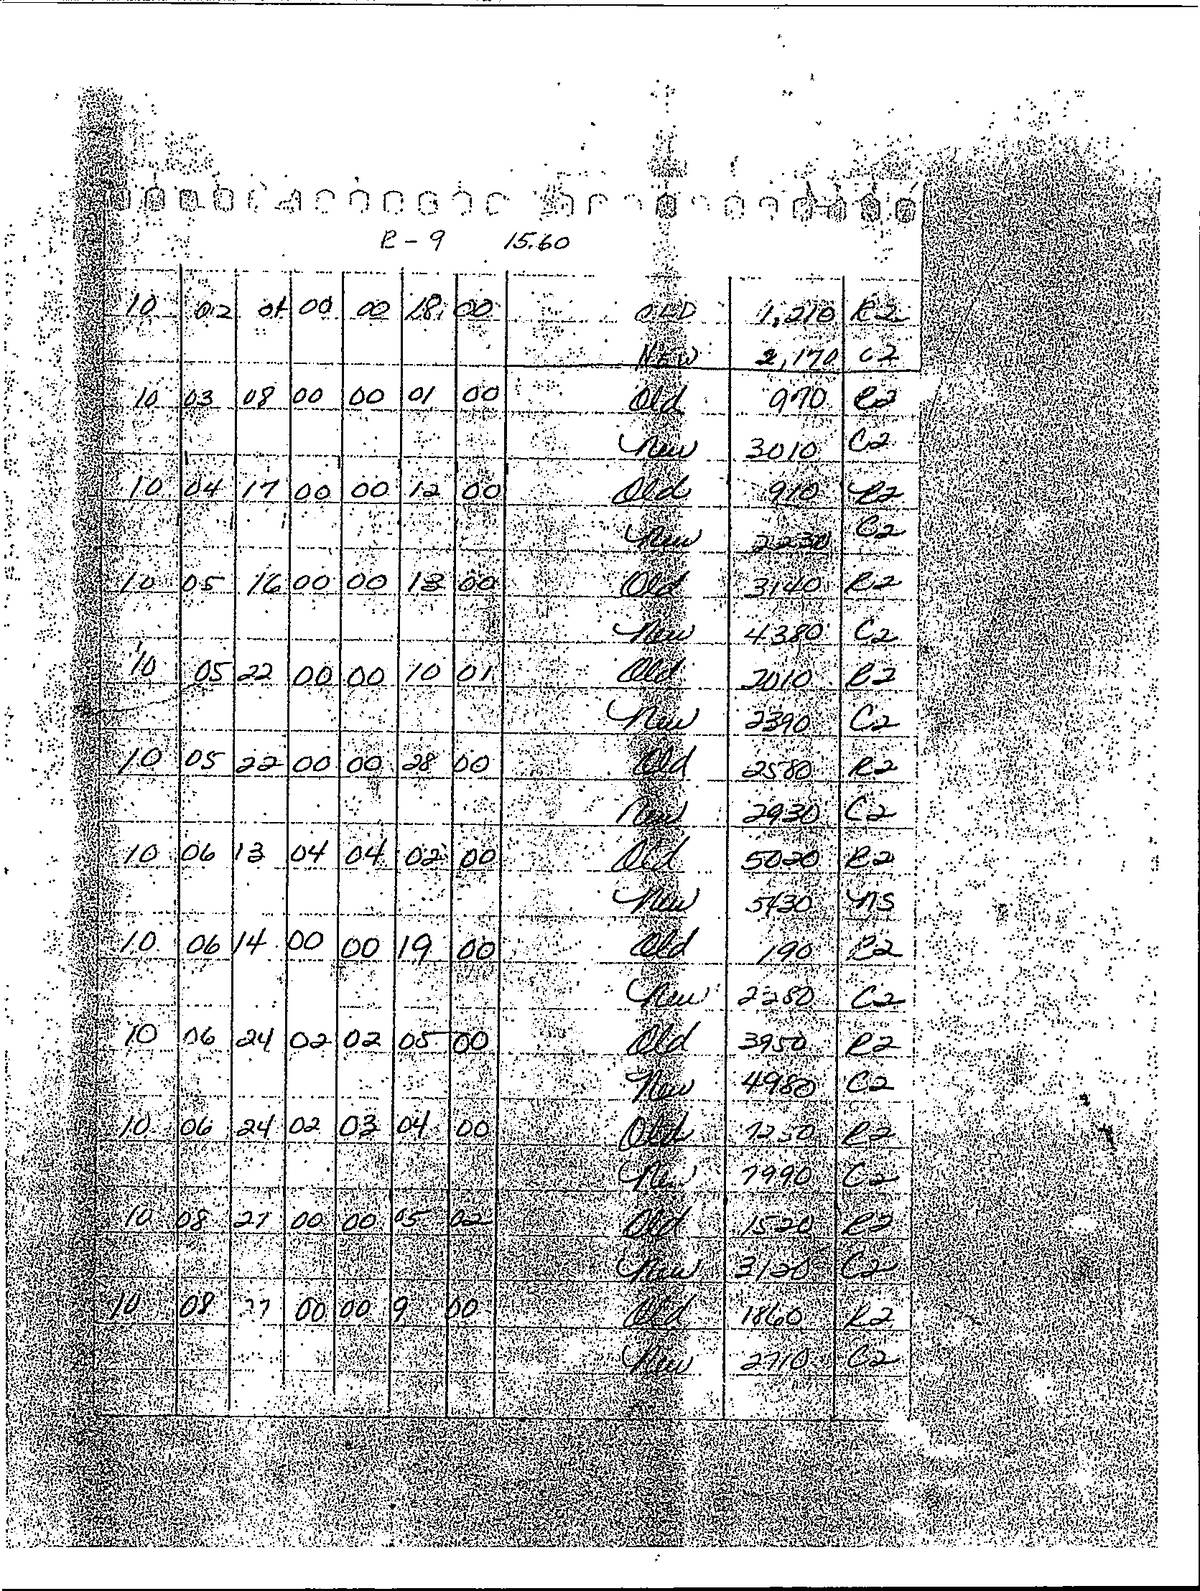 R-9 15.60
10 02 01 00 00 28 00 OLD 1,210 R2
NEW 2,170 C2
10 03 08 00 00 01 00 Old 970 R2
New 3010 C2
10 04 17 00 00 12 00 Old 910 R2
New 2230 C2
10 05 16 00 00 13 00 Old 3140 R2
New 4380 C2
10 05 22 00 00 10 01 Old 2010 R2
New 2390 C2
10 05 22 00 00 28 00 Old 2580 R2
New 2930 C2
10 06 13 04 04 02 00 Old 5020 R2
New 5430 NS
10 06 14 00 00 19 00 Old 190 R2
New 2280 C2
10 06 24 02 02 05 00 Old 3950 R2
New 4980 C2
10 06 24 02 03 04 00 Old 7250 R2
New 7990 C2
10 08 27 00 00 05 02 Old 1520 R2
New 3120 C2
10 08 27 00 00 9 00 Old 1860 R2
New 2710 C2